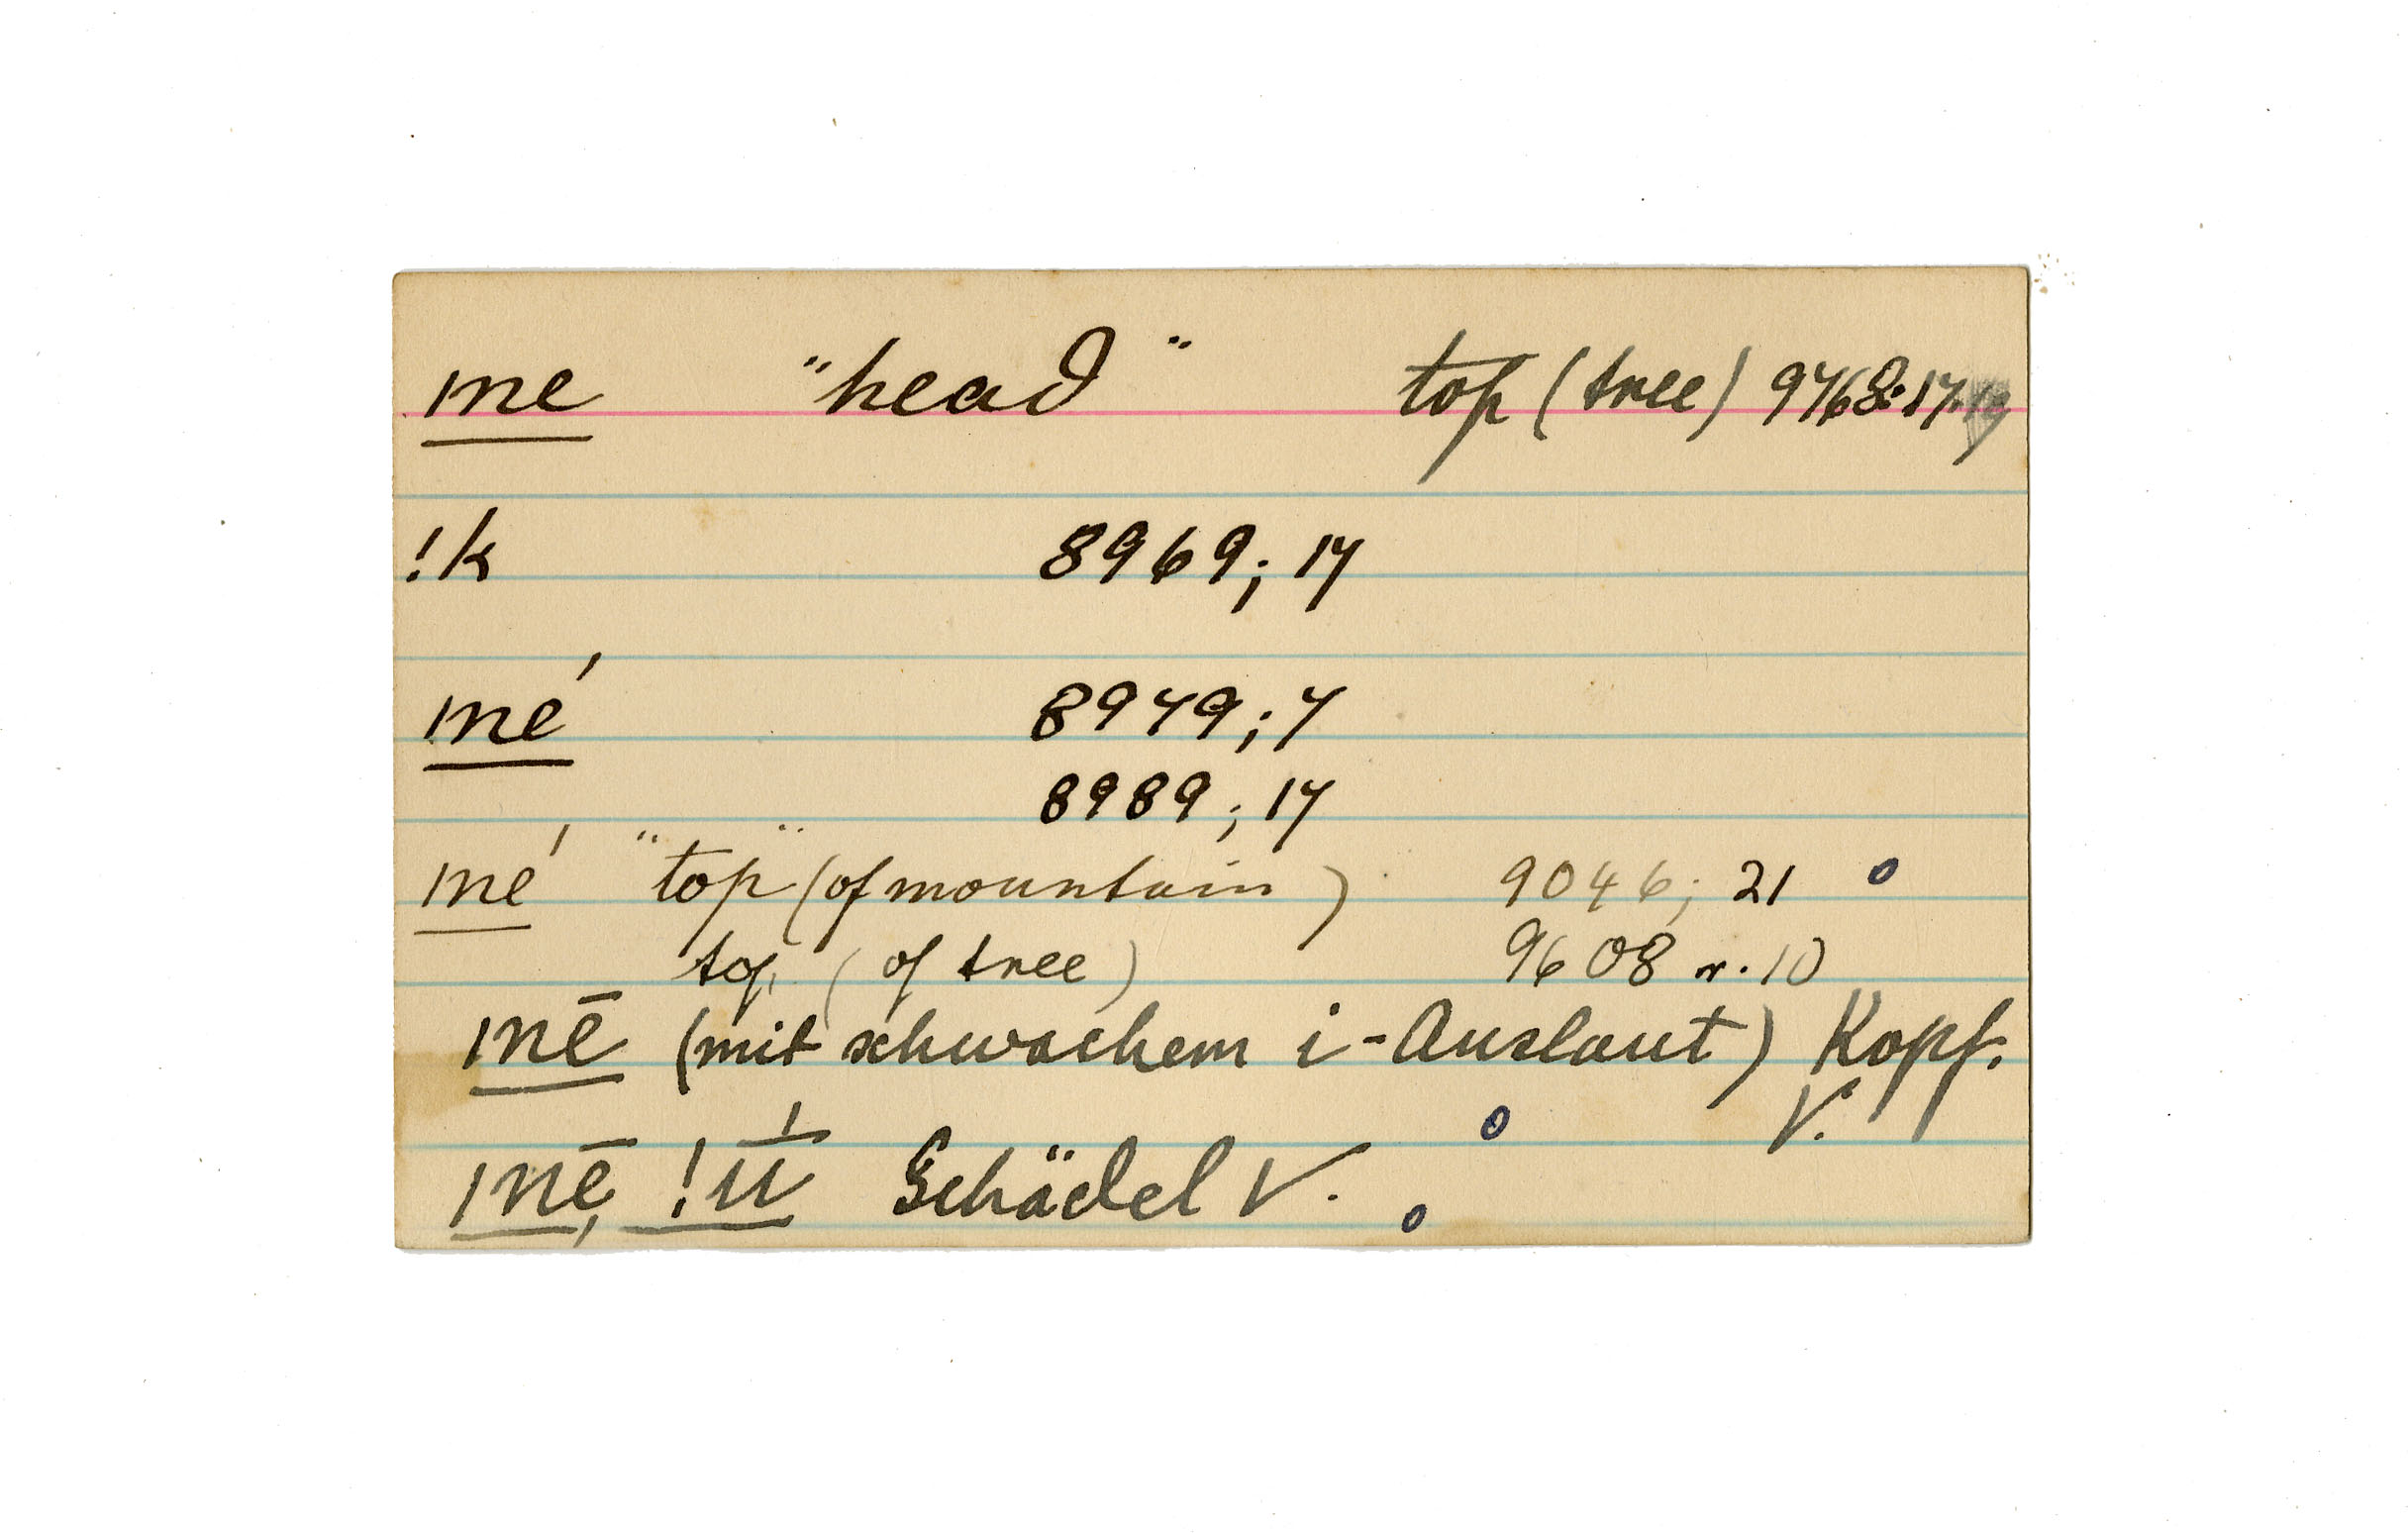 /ne "head" top (tree) 9768: 17.
!k 8969; 17
/né 8979; 7
8989; 17
/né "top" (of mountain) 9046; 21 o
top (of tree) 9608 r. 10
/nē (mit schwachem i-Auslaut) Kopf.
V.
o
/nē, !ū́ Schädel V. o